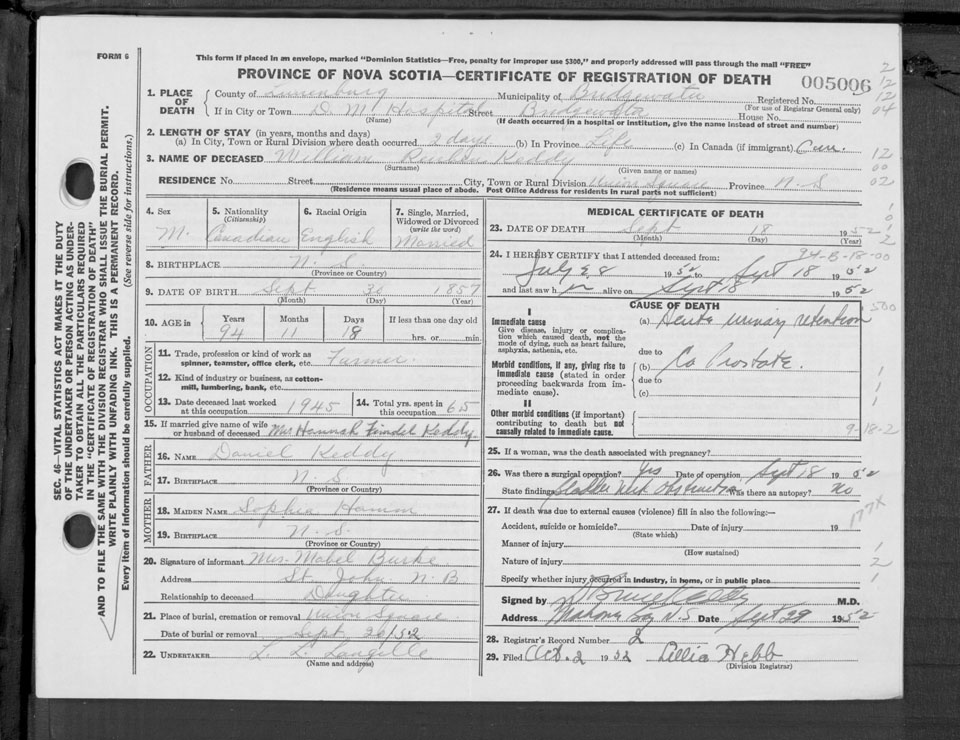 FORM 6
This form if placed in an envelope, marked "Dominion Statistics—Free, penalty for improper use $300," and properly addressed will pass through the mail "FREE"
PROVINCE OF NOVA SCOTIA—CERTIFICATE OF REGISTRATION OF DEATH
005006
2
12
12
04
12
00
02
1. PLACE OF DEATH County of Lunenburg Municipality of Bridgewater Registered No.
(For use of Registrar General only)
If in City or Town D. M. Hospital Street Bridgewater House No.
(Name) (If death occurred in a hospital or institution, give the name instead of street and number)
2. LENGTH OF STAY (in years, months and days)
(a) In City, Town or Rural Division where death occurred 2 days (b) In Province Life (c) In Canada (if immigrant)
3. NAME OF DECEASED William Keddy
(Surname) (Given name or names)
RESIDENCE No. Street City, Town or Rural Division Union Square Province N.S
(Residence means usual place of abode. Post Office Address for residents in rural parts not sufficient)
SEC. 46—VITAL STATISTICS ACT MAKES IT THE DUTY
OF THE UNDERTAKER OR PERSON ACTING AS UNDER-
TAKER TO OBTAIN ALL THE PARTICULARS REQUIRED
IN THE "CERTIFICATE OF REGISTRATION OF DEATH"
AND TO FILE THE SAME WITH THE DIVISION REGISTRAR WHO SHALL ISSUE THE BURIAL PERMIT.
WRITE PLAINLY WITH UNFADING INK. THIS IS A PERMANENT RECORD.
Every item of information should be carefully supplied. (See reverse side for instructions.)
4. Sex 5. Nationality (Citizenship) 6. Racial Origin 7. Single, Married, Widowed or Divorced (write the word)
M. Canadian English Married
8. BIRTHPLACE N. S.
(Province or Country)
9. DATE OF BIRTH Sept 30 1857
(Month) (Day) (Year)
10. AGE in Years Months Days If less than one day old
94 11 18 hrs. or min.
OCCUPATION
11. Trade, profession or kind of work as spinner, teamster, office clerk, etc. Farmer
12. Kind of industry or business, as cotton-mill, lumbering, bank, etc.
13. Date deceased last worked at this occupation 1945 14. Total yrs. spent in this occupation 65
15. If married give name of wife or husband of deceased Mrs Hannah Feindel Keddy
FATHER
16. NAME Daniel Keddy
17. BIRTHPLACE N S
(Province or Country)
MOTHER
18. MAIDEN NAME Sophia Hamm
19. BIRTHPLACE N. S.
(Province or Country)
20. Signature of informant Mrs. Mabel Burke
Address St. John N. B
Relationship to deceased Daughter
21. Place of burial, cremation or removal Union Square
Date of burial or removal Sept 20/52
22. UNDERTAKER L. L. Langille
(Name and address)
MEDICAL CERTIFICATE OF DEATH
23. DATE OF DEATH Sept 18 1952
(Month) (Day) (Year)
94-B-18-00
24. I HEREBY CERTIFY that I attended deceased from:
July 28 1952 to Sept 18 1952
and last saw h alive on Sept 18 1952
CAUSE OF DEATH
I
Immediate cause (a) Acute urinary retention
Give disease, injury or complication which caused death, not the mode of dying, such as heart failure, asphyxia, asthenia, etc.
due to
Morbid conditions, if any, giving rise to immediate cause (stated in order proceeding backwards from immediate cause). (b) Ca Prostate.
due to
(c)
II
Other morbid conditions (if important) contributing to death but not causally related to immediate cause.
9-18-2
25. If a woman, was the death associated with pregnancy?
26. Was there a surgical operation? Yes Date of operation Sept 18 1952
State findings Bladder Neck Obstruction Was there an autopsy? No
177X
27. If death was due to external causes (violence) fill in also the following:—
Accident, suicide or homicide? Date of injury 19
(State which)
Manner of injury
(How sustained)
Nature of injury
Specify whether injury occurred in industry, in home, or in public place
Signed by M.D.
Address Mahone Bay N.S Date Sept 29 1952
28. Registrar's Record Number 2
29. Filed Oct. 2 1952 Lillia Hebb
(Division Registrar)